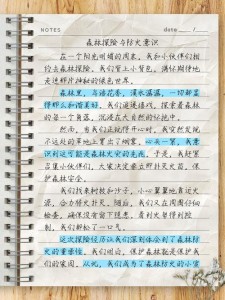 NOTES
date    /
森林探险与防火意识
在一个阳光明媚的周末，我和小伙伴们相
约去森林探险。我们背上小背包，满怀期待地
走进那片神秘的绿色世界。
森林里，鸟语花香，溪水潺潺，一切都显
得那么和谐美好。我们边走边玩，探索着森林
的每一个角落，沉浸在大自然的怀抱中。
然而，当我们正玩得开心时，我突然发现
不远处的草地上冒出了烟雾。心头一紧，我意
识到这可能是森林火灾的先兆。于是，我赶紧
召集小伙伴们，大家决定要立即扑灭火苗，保
护森林安全。
我们找来树枝和沙子，小心翼翼地靠近火
源，合力将火扑灭。随后，我们又在周围仔细
检查，确保没有留下隐患。看到火苗得到控
制，我们都松了一口气。
这次探险经历让我们深刻体会到了森林防
火的重要性。我们明白，保护森林就是保护我
们的家园。从此，我们成为了森林防火的小宣